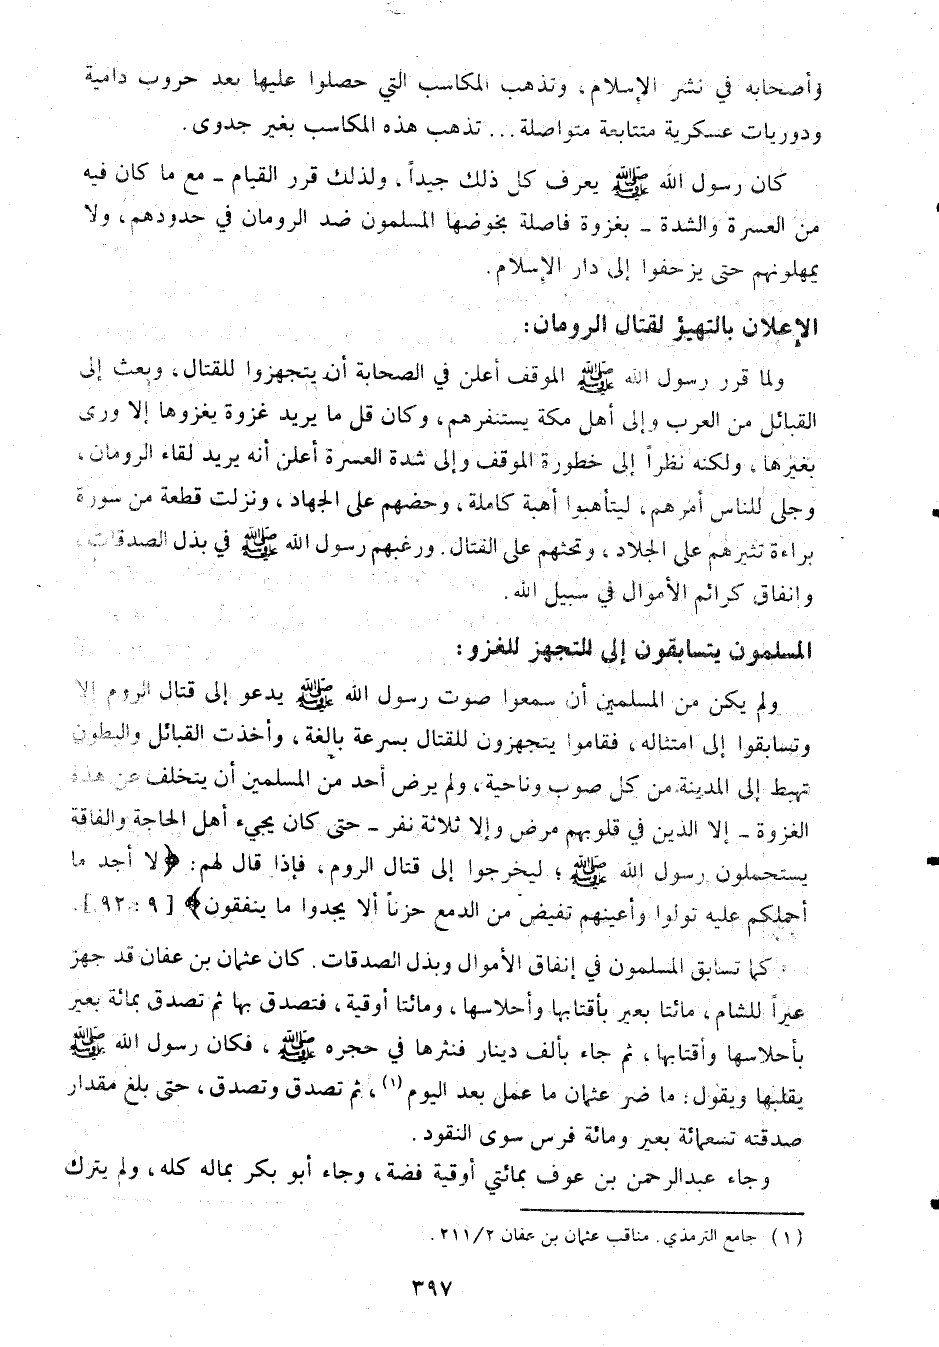 وأصحابه في نشر الإسلام، وتذهب المكاسب التي حصلوا عليها بعد حروب دامية
ودوريات عسكرية متتابعة متواصلة... تذهب هذه المكاسب بغير جدوى.
كان رسول الله ﷺ يعرف كل ذلك جيداً، ولذلك قرر القيام ـ مع ما كان فيه
من العسرة والشدة ـ بغزوة فاصلة يخوضها المسلمون ضد الرومان في حدودهم، ولا
يمهلونهم حتى يزحفوا إلى دار الإسلام.
الإعلان بالتهيؤ لقتال الرومان:
ولما قرر رسول الله ﷺ الموقف أعلن في الصحابة أن يتجهزوا للقتال، وبعث إلى
القبائل من العرب وإلى أهل مكة يستنفرهم، وكان قل ما يريد غزوة يغزوها إلا ورى
بغيرها، ولكنه نظراً إلى خطورة الموقف وإلى شدة العسرة أعلن أنه يريد لقاء الرومان،
وجلى للناس أمرهم، ليتأهبوا أهبة كاملة، وحضهم على الجهاد، ونزلت قطعة من سورة
براءة تثيرهم على الجلاد، وتحثهم على القتال. ورغبهم رسول الله ﷺ في بذل الصدقات،
وانفاق كرائم الأموال في سبيل الله.
المسلمون يتسابقون إلى التجهز للغزو:
ولم يكن من المسلمين أن سمعوا صوت رسول الله ﷺ يدعو إلى قتال الروم إلا
وتسابقوا إلى امتثاله، فقاموا يتجهزون للقتال بسرعة بالغة، وأخذت القبائل والبطون
تهبط إلى المدينة من كل صوب وناحية، ولم يرض أحد من المسلمين أن يتخلف عن هذه
الغزوة ـ إلا الذين في قلوبهم مرض وإلا ثلاثة نفر ـ حتى كان يجيء أهل الحاجة والفاقة
يستحملون رسول الله ﷺ؛ ليخرجوا إلى قتال الروم، فإذا قال لهم: ﴿لا أجد ما
أحملكم عليه تولوا وأعينهم تفيض من الدمع حزناً ألا يجدوا ما ينفقون﴾ [٩: ٩٢].
كما تسابق المسلمون في إنفاق الأموال وبذل الصدقات. كان عثمان بن عفان قد جهز
عيراً للشام، مائتا بعير بأقتابها وأحلاسها، ومائتا أوقية، فتصدق بها ثم تصدق بمائة بعير
بأحلاسها وأقتابها، ثم جاء بألف دينار فنثرها في حجره ﷺ، فكان رسول الله ﷺ
يقلبها ويقول: ما ضر عثمان ما عمل بعد اليوم(١)، ثم تصدق وتصدق، حتى بلغ مقدار
صدقته تسعمائة بعير ومائة فرس سوى النقود.
وجاء عبدالرحمن بن عوف بمائتي أوقية فضة، وجاء أبو بكر بماله كله، ولم يترك
(١) جامع الترمذي. مناقب عثمان بن عفان ٢١١/٢.
٣٩٧